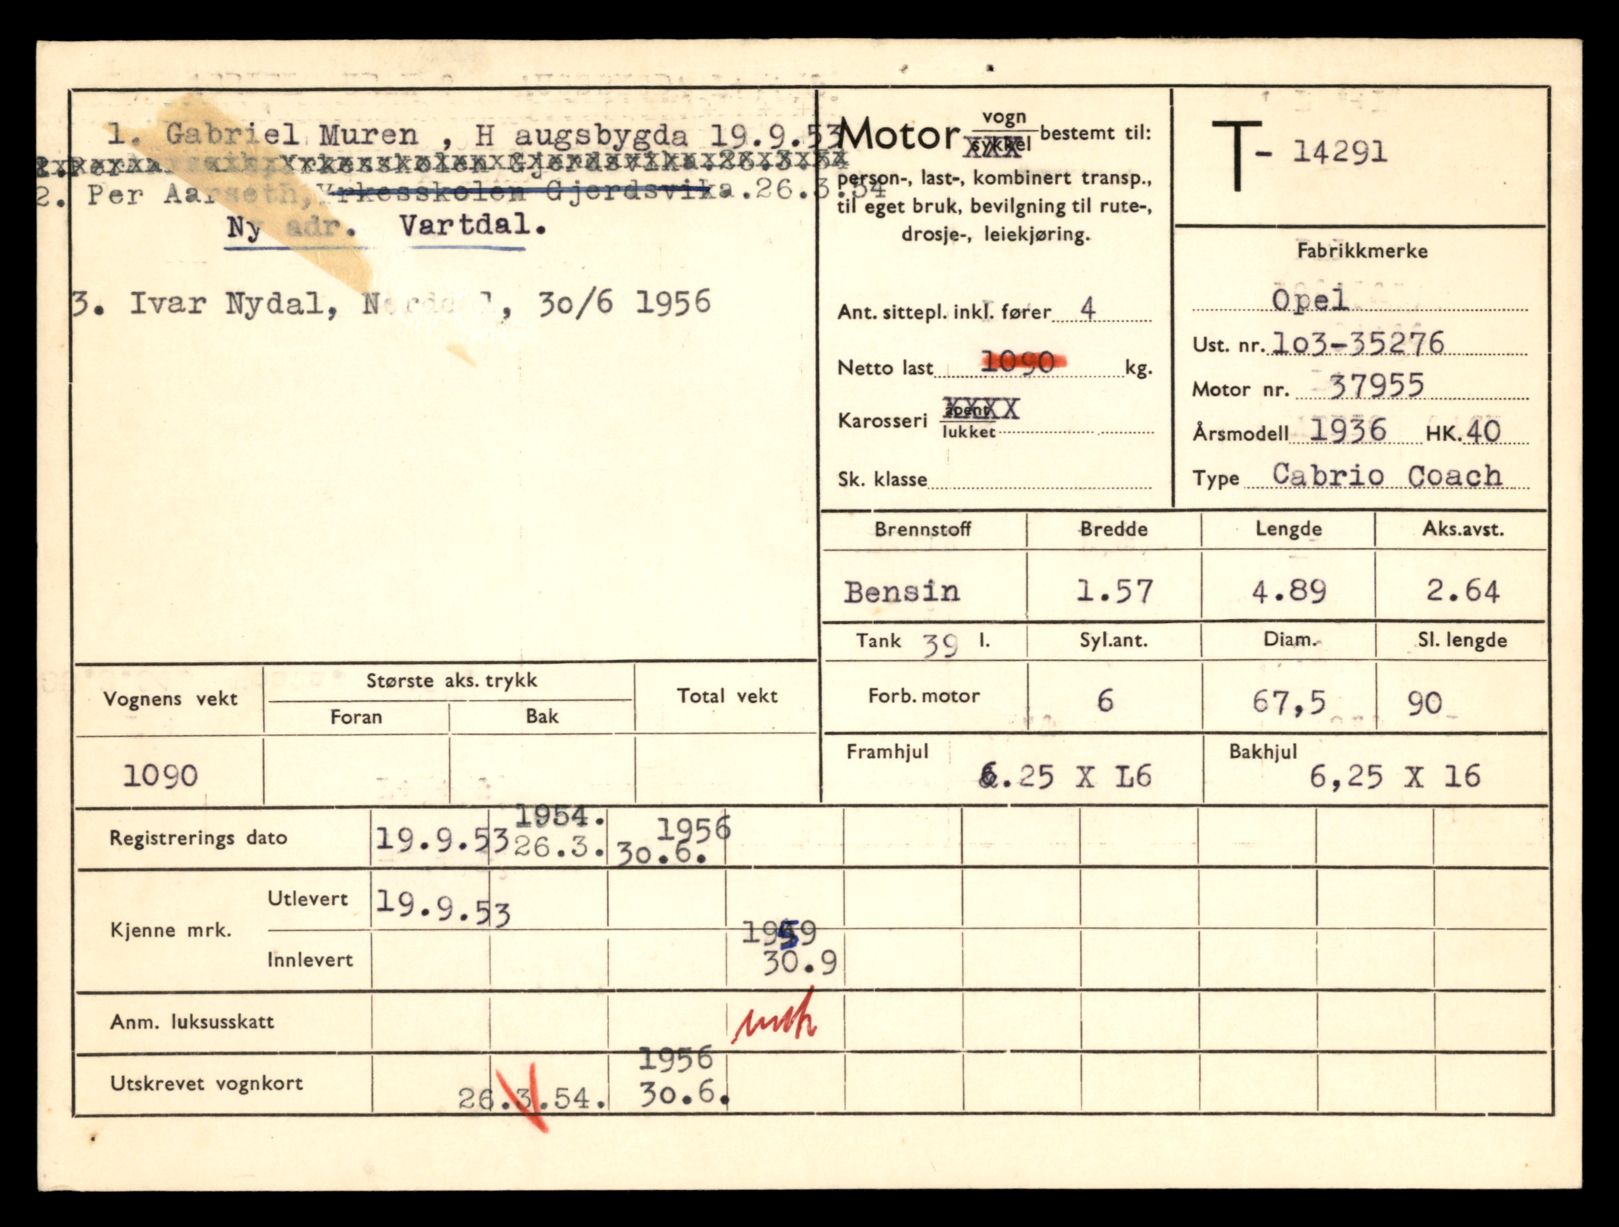 1. Gabriel Muren , H augsbygda 19.9.53
2. Per Aarseth, Yrkesskolen Gjerdsvika.26.3.54
Ny adr. Vartdal.
3. Ivar Nydal, 30/6 1956
Motor vogn sykkel bestemt til:
person-, last-, kombinert transp.,
til eget bruk, bevilgning til rute-,
drosje-, leiekjøring.
Ant. sittepl. inkl. fører 4
Netto last 1090 kg.
Karosseri åpent lukket
Sk. klasse
T- 14291
Fabrikkmerke
Opel
Ust. nr. 1o3-35276
Motor nr. 37955
Årsmodell 1936 HK. 40
Type Cabrio Coach
Brennstoff Bredde Lengde Aks.avst.
Bensin 1.57 4.89 2.64
Tank 39 l. Syl.ant. Diam. Sl. lengde
Forb. motor 6 67,5 90
Framhjul 6.25 X L6 Bakhjul 6,25 X 16
Vognens vekt Største aks. trykk Total vekt
Foran Bak
1090
Registrerings dato 19.9.53 1954. 26.3. 1956 30.6.
Kjenne mrk. Utlevert 19.9.53
Innlevert 1959 30.9
Anm. luksusskatt
Utskrevet vognkort 26.3.54. 1956 30.6.